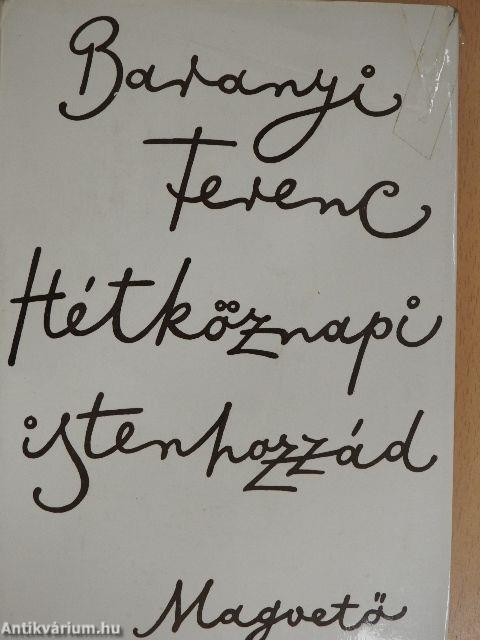 Baranyi
Ferenc
Hétköznapi
istenhozzád
Magvető
Antikvárium.hu